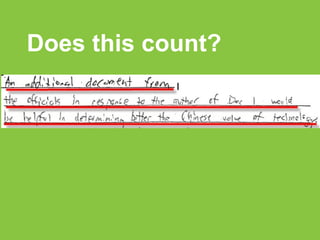 Does this count?
An additional document from
the officials in response to the author of Doc 1 would
be helpful in determining better the Chinese value of technology